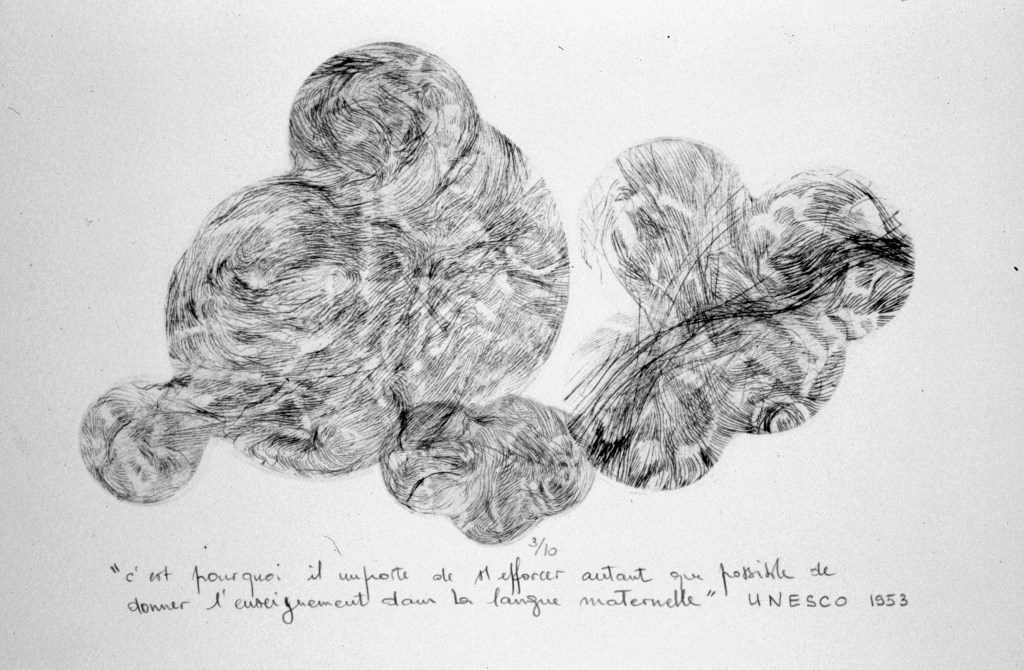 3/10
"c'est pourquoi il importe de s'efforcer autant que possible de
donner l'enseignement dans la langue maternelle" UNESCO 1953